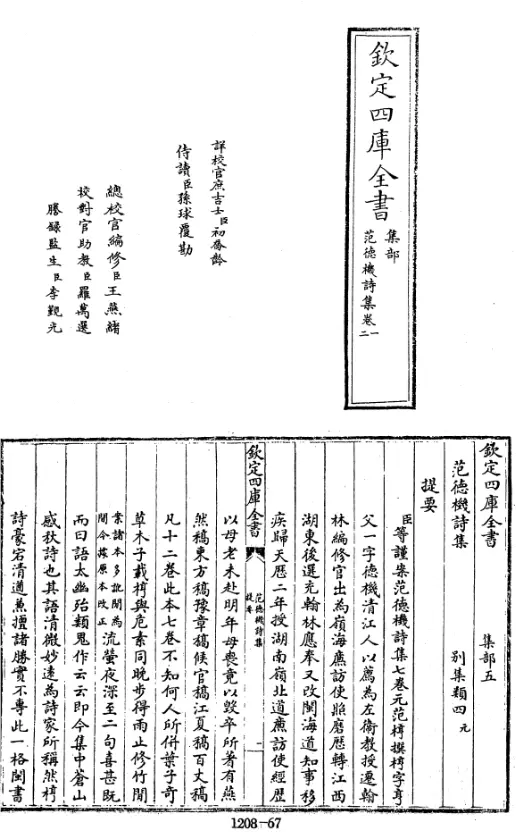 欽定四庫全書
集部
范德機詩集卷一
二
詳校官庶吉士臣初喬齡
侍讀臣孫球覆勘
總校官編修臣王燕緒
校對官助教臣羅萬選
謄錄監生臣李觀光
欽定四庫全書 集部五
范德機詩集 別集類四元
提要
臣等謹案范德機詩集七卷元范梈撰梈字亨
父一字德機清江人以薦為左衛教授遷翰
林編修官出為嶺海廉訪使照磨歷轉江西
湖東後選充翰林應奉又改閩海道知事移
疾歸天歷二年授湖南嶺北道廉訪使經歴
欽定四庫全書
范德機詩集
提要
一
以母老未赴明年母喪竟以毀卒所著有燕
然稿東方稿豫章稿候官稿江夏稿百丈稿
凡十二卷此本七卷不知何人所併葉子奇
草木子載梈與危素同晚步得雨止修竹間
案諸本多訛閒為
閒今據原本改正
流螢夜深至二句喜甚既
而曰語太幽殆類鬼作云云即今集中蒼山
感秋詩也其語清微妙遠為詩家所稱然梈
詩豪宕清遒兼擅諸勝實不專此一格閩書
1208-67